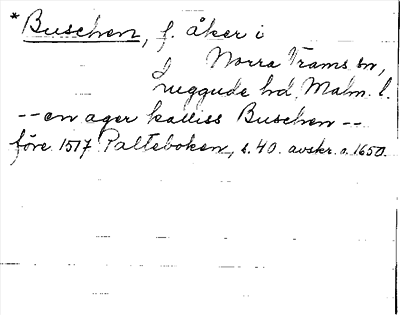 * Buschen, f. åker i
Norra Trams sn,
Luggude hd, Malm. l.
-- en ager kalliss Buschen --
före 1517 Palteboken, s. 40. avskr. a. 1650.